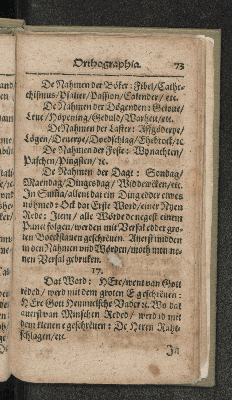 Orthographia. 73
De Nahmen der Böker: Fibel/Cathe-
chismus/Psalter/Passion/Calender/etc.
De Nahmen der Dögenden: Gelove/
Leve/Höpening/Geduld/Warheit/etc.
De Nahmen der Laster: Affgöderye/
Lögen/Deverye/Doedschlag/Ehebrock/ec.
De Nahmen der Feste: Wynachten/
Paschen/Pingsten/ec.
De Nahmen der Dage: Sondag/
Maendag/Dingsdag/Middeweken/ec.
In Summa/allens dat ein Ding edder etwes
nöhmed: Ock dat Erste Word/einer Nyen
Rede: Item/alle Wörde de negest einem
Punct folgen/werden mit Versal edder gro-
ten Boeckstaven geschreven. Averst midden
in den Nahmen und Wörden/moth men ne-
nen Versal gebruken.
17.
Dat Word: HEre/wenn van Gott
reded/werd mit dem groten E geschreven:
HEre Gott Hemmelsche Vader ec. Wo dat
averst van Minschen Reded/werd id mit
dem klenen e geschreven: De Heren Raht-
schlagen/etc.
In